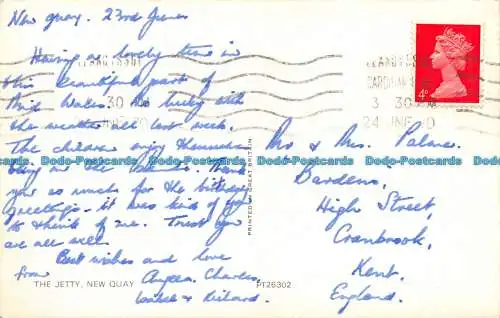 New Quay. 23rd June
Having a lovely time in
this beautiful part of
Mid Wales. So lucky with
the weather all last week.
The children enjoy themselves
on the
Thank
you so much for the birthday
greetings - it was kind of you
to think of me. Trust you
are all well.
Best wishes and love
from Angela, Charles,
& Richard.
THE JETTY, NEW QUAY
PT26302
PRINTED IN GREAT BRITAIN
4D
3 30 PM
24 JNE 70
30 PM
Mr & Mrs. Palmer.
"Bardens",
High Street,
Cranbrook,
Kent.
England.
Dodo-Postcards Dodo-Postcards Dodo-Postcards Dodo-Postcards